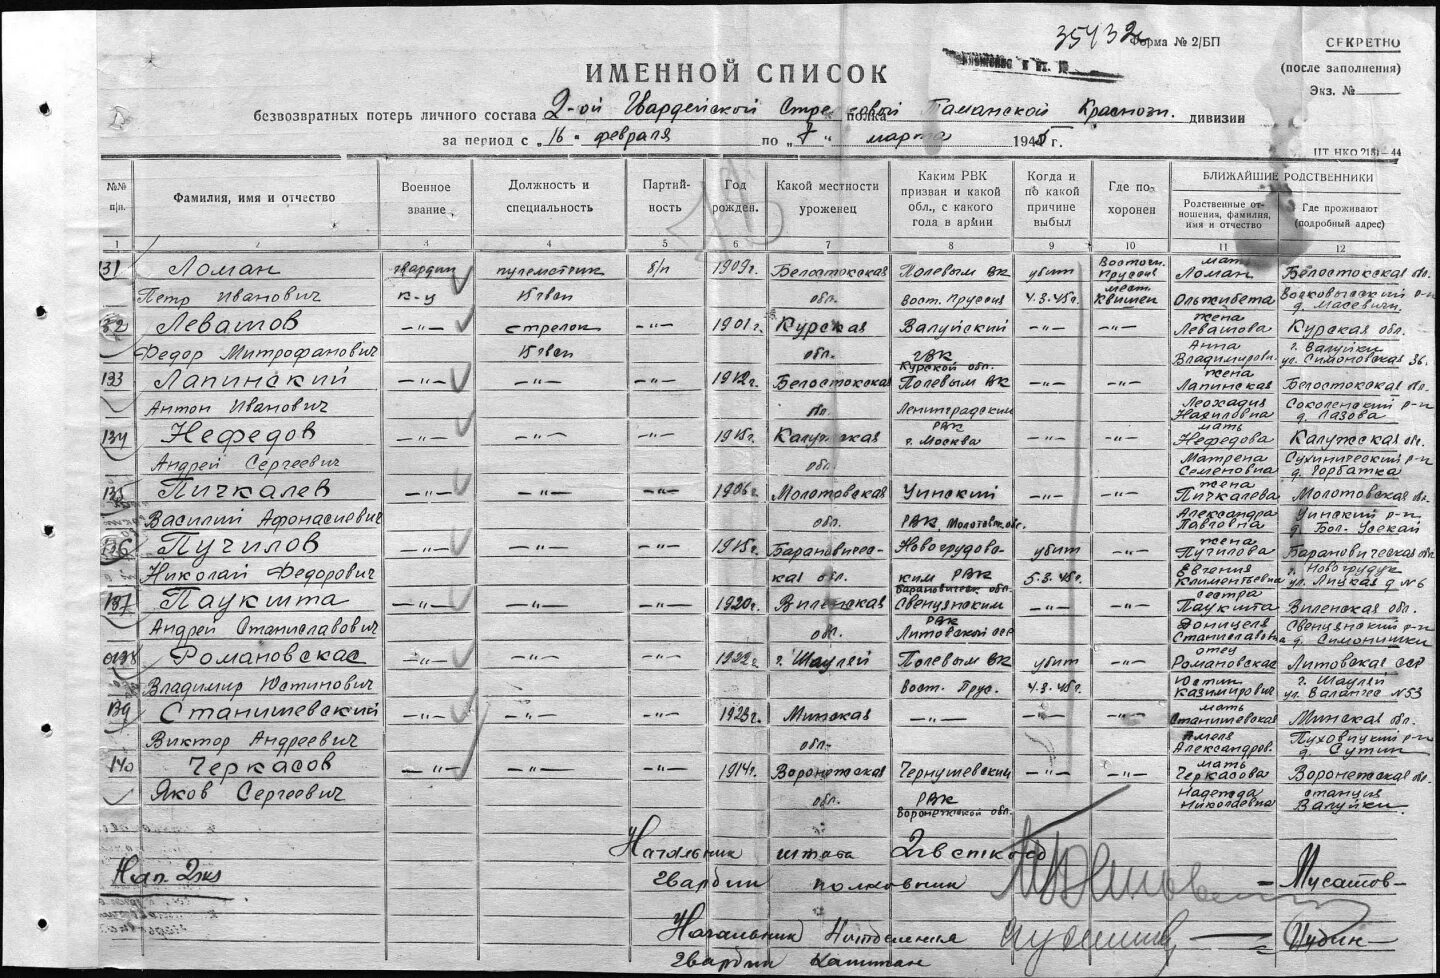 35432
Форма № 2/БП
СЕКРЕТНО
(после заполнения)
Экз. №
ИМЕННОЙ СПИСОК
безвозвратных потерь личного состава 2-ой Гвардейской Стрелковой Таманской Краснозн. дивизии
полка
за период с „16" февраля по „7" марта 1945 г.
ЦТ НКО 2181—44
№№ п/п. Фамилия, имя и отчество Военное звание Должность и специальность Партийность Год рожден. Какой местности уроженец Каким РВК призван и какой обл., с какого года в армии Когда и по какой причине выбыл Где похоронен БЛИЖАЙШИЕ РОДСТВЕННИКИ
Родственные отношения, фамилия, имя и отчество Где проживают (подробный адрес)
1 2 3 4 5 6 7 8 9 10 11 12
131 Ломан гвардии пулеметчик б/п 1909г. Белостокская Полевым ВК убит Восточн. Пруссия мать Ломан Белостокская обл.
Петр Иванович к-ц 15 гвсп обл. Вост. Пруссия 4.3.45г. мест. Квишен Ольжибета д. Масевичи
132 Левашов —"— стрелок —"— 1901г. Курская Валуйский —"— —"— жена Левашова Курская обл.
Федор Митрофанович 15 гвсп обл. РВК Курской обл. Анна Владимировн. г. Валуйки ул. Симоновская 36.
133 Лапинский —"— —"— —"— 1912г. Белостокская Полевым ВК —"— —"— жена Лапинская Белостокская обл.
Антон Иванович обл. Ленинградским Леокадия Сокольский р-н д. Лазова
134 Нефедов —"— —"— —"— 1915г. Калужская РВК г. Москва —"— —"— мать Нефедова Калужская обл.
Андрей Сергеевич обл. Матрена Семеновна Сухинический р-н д. Горбатка
135 Пичкалев —"— —"— —"— 1906г. Молотовская Уинский —"— —"— жена Пичкалева Молотовская обл.
Василий Афонасиевич обл. РВК Молотовск. обл. Александра Павловна Уинский р-н
136 Пучилов —"— —"— —"— 1915г. Барановичес- Новогрудс- убит —"— жена Пучилова Барановическая обл.
Николай Федорович кая обл. ким РВК Барановическ. обл. 5.3.45г. Евгения Климентьевна г. Новогрудук
137 Паукшта —"— —"— —"— 1920г. Виленская Свенцянским —"— —"— сестра Паукшта Виленская обл.
Андрей Станиславович обл. РВК Литовской ССР Станиславовна Свенцянский р-н д. Симонишки
138 Романовскас —"— —"— —"— 1922г. г. Шауляй Полевым ВК убит —"— отец Романовскас Литовская ССР
Владимир Юстинович Вост. Прус. 4.3.45г. Юстин Казимирович г. Шауляй ул. Валанчес N 53
139 Станишевский —"— —"— —"— 1923г. Минская —"— —"— —"— мать Станишевская Минская обл.
Виктор Андреевич обл. Александров. Пуховицкий р-н д. Сутин
140 Черкасов —"— —"— —"— 1914г. Воронежская Чернушевский —"— —"— мать Черкасова Воронежская обл.
Яков Сергеевич обл. РВК Воронежской обл. Надежда Николаевна станция Валуйки
Начальник штаба 2гвсткд
Гвардии полковник = Мусатов—
Начальник 4 отделения
Гвардии капитан